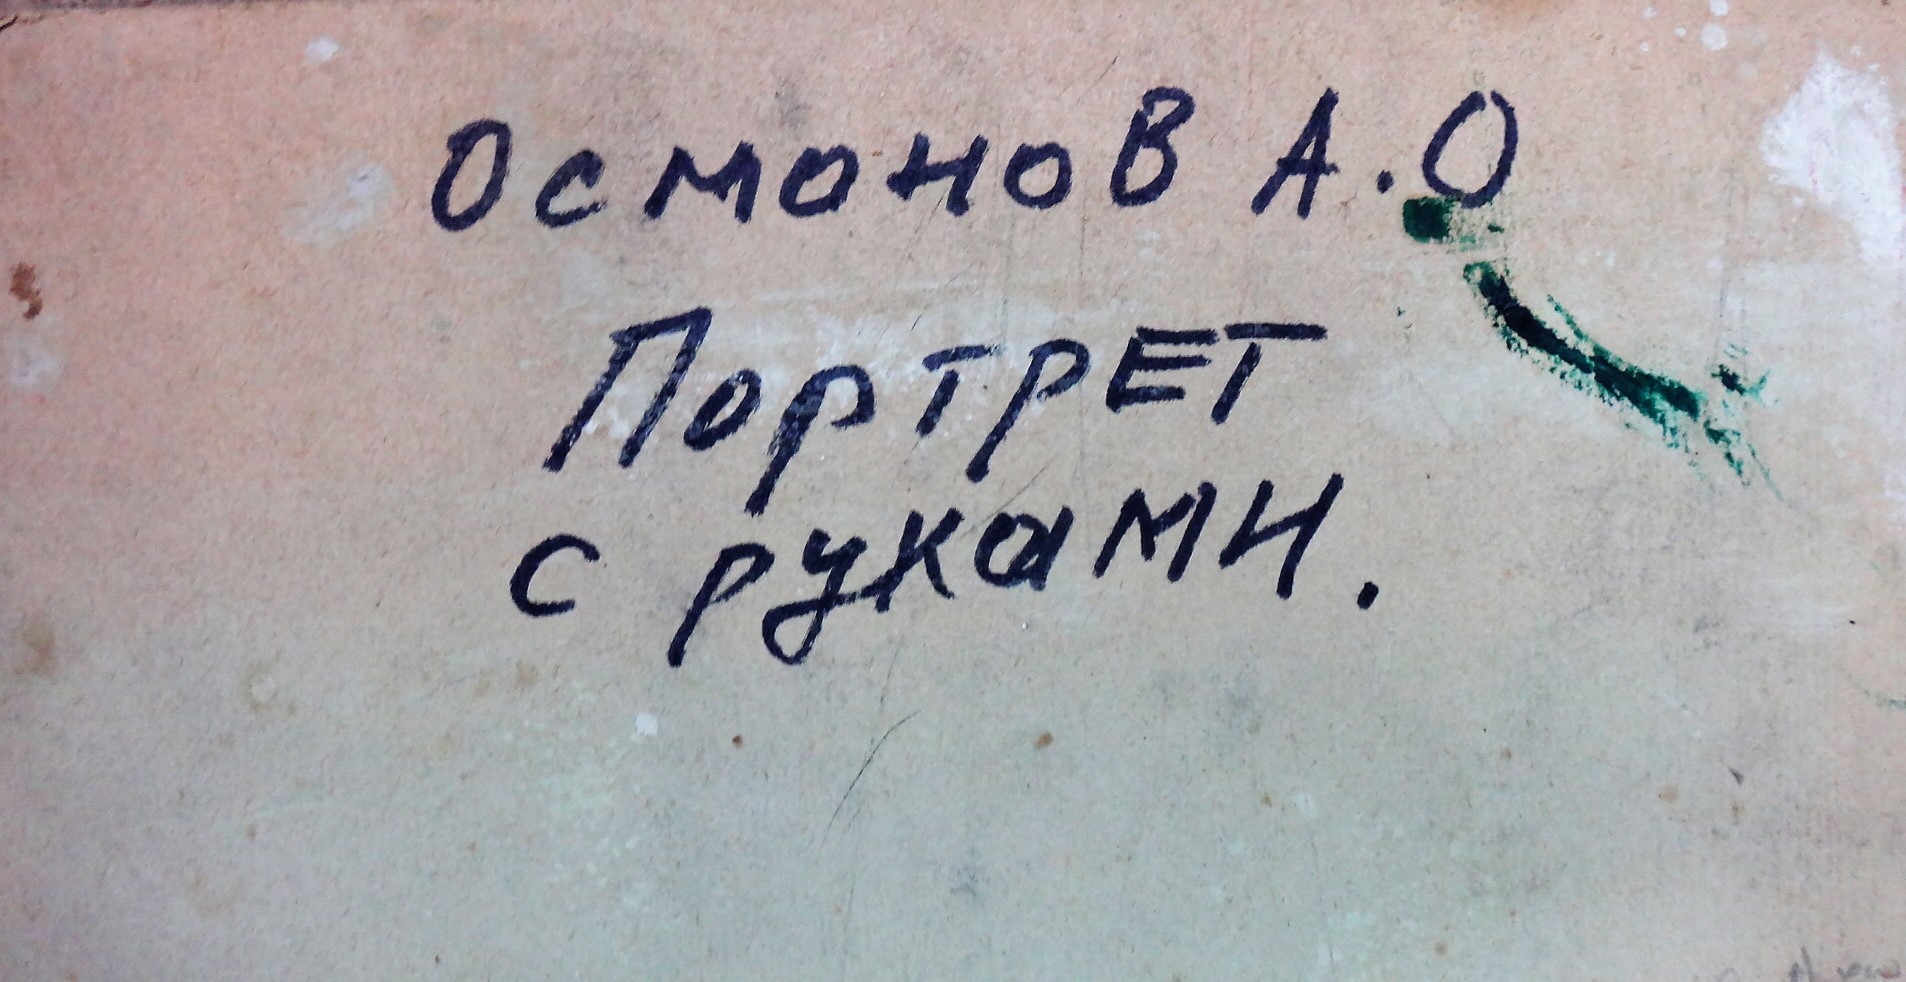 Осмонов А.О
Портрет
с руками.